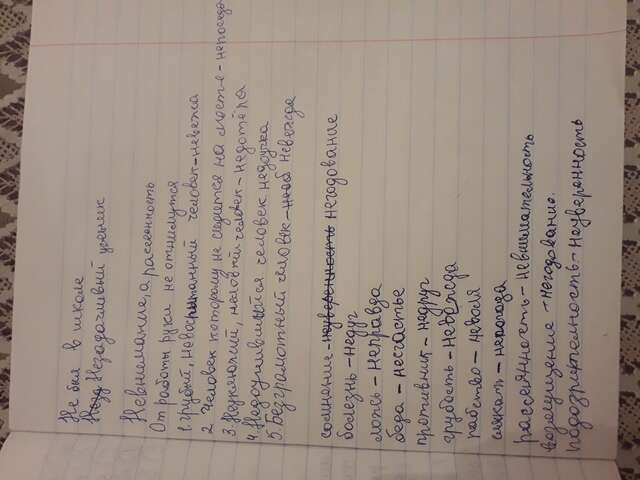 Не был в школе
Незадачливый ученик
Невнимание, а рассеяность
От работы руки не отнимутся
1. грубый, невоспитанный человек-невежа
2 Человек которому не сидится на месте - непоседа
3. Неуклюжий, неловкий человек-недотёпа
4. Недоучившийся человек недоучка
5. Безграмотный человек - невежда
сомнение - неуверенность негодование
болезнь - недуг
ложь - неправда
беда - несчастье
противник - недруг
грубость - невежда
рабство - неволя
слякоть - непогода
рассеянность - невнимательность
возмущение - негодование.
подозрительность - неуверенность